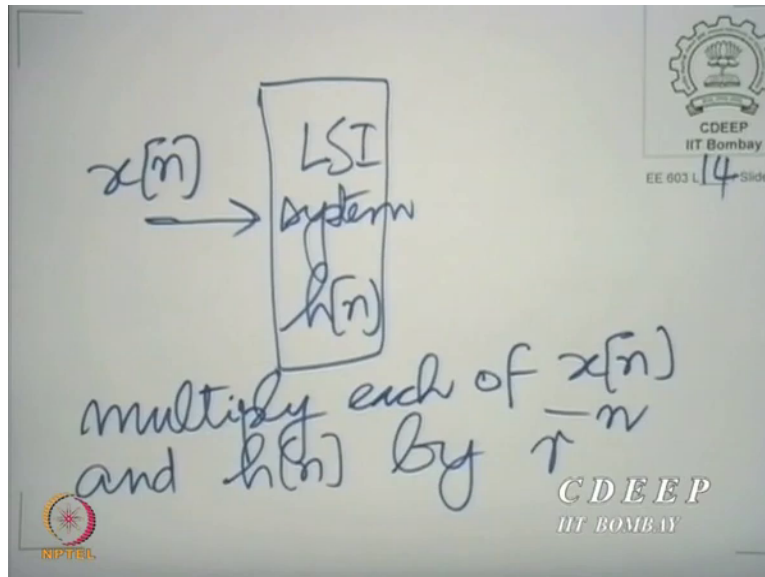 CDEEP
IIT Bombay
EE 603 L 14 Slide
x[n]
LSI
system
h[n]
multiply each of x[n]
and h[n] by r^-n
CDEEP
IIT BOMBAY
NPTEL